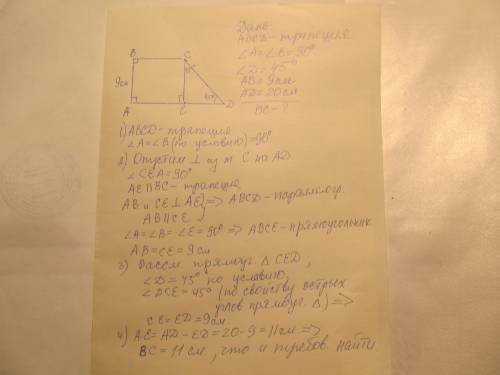 Дано:
ABCD-трапеция
∠A=∠B=90°
∠D=45°
AB=9см
AD=20см
BC-?
B
C
9см
A
E
45°
D
1) ABCD-трапеция
∠A=∠B (по условию)=90°.
2) Опустим ⊥ из т C на AD
∠CEA=90°
AE∥BC-трапеция,
AB и CE⊥AE } => ABCD-параллегр.
AB∥CE
∠A=∠B=∠E=90° => ABCE-прямоугольник
AB=CE=9см
3) Рассм. прямоуг. △CED;
∠D=45° по условию,
∠DCE=45° (по свойству острых
углов прямоуг. △) =>
CE=ED=9см.
4) AE=AD-ED=20-9=11см =>
BC=11см, что и требов. найти